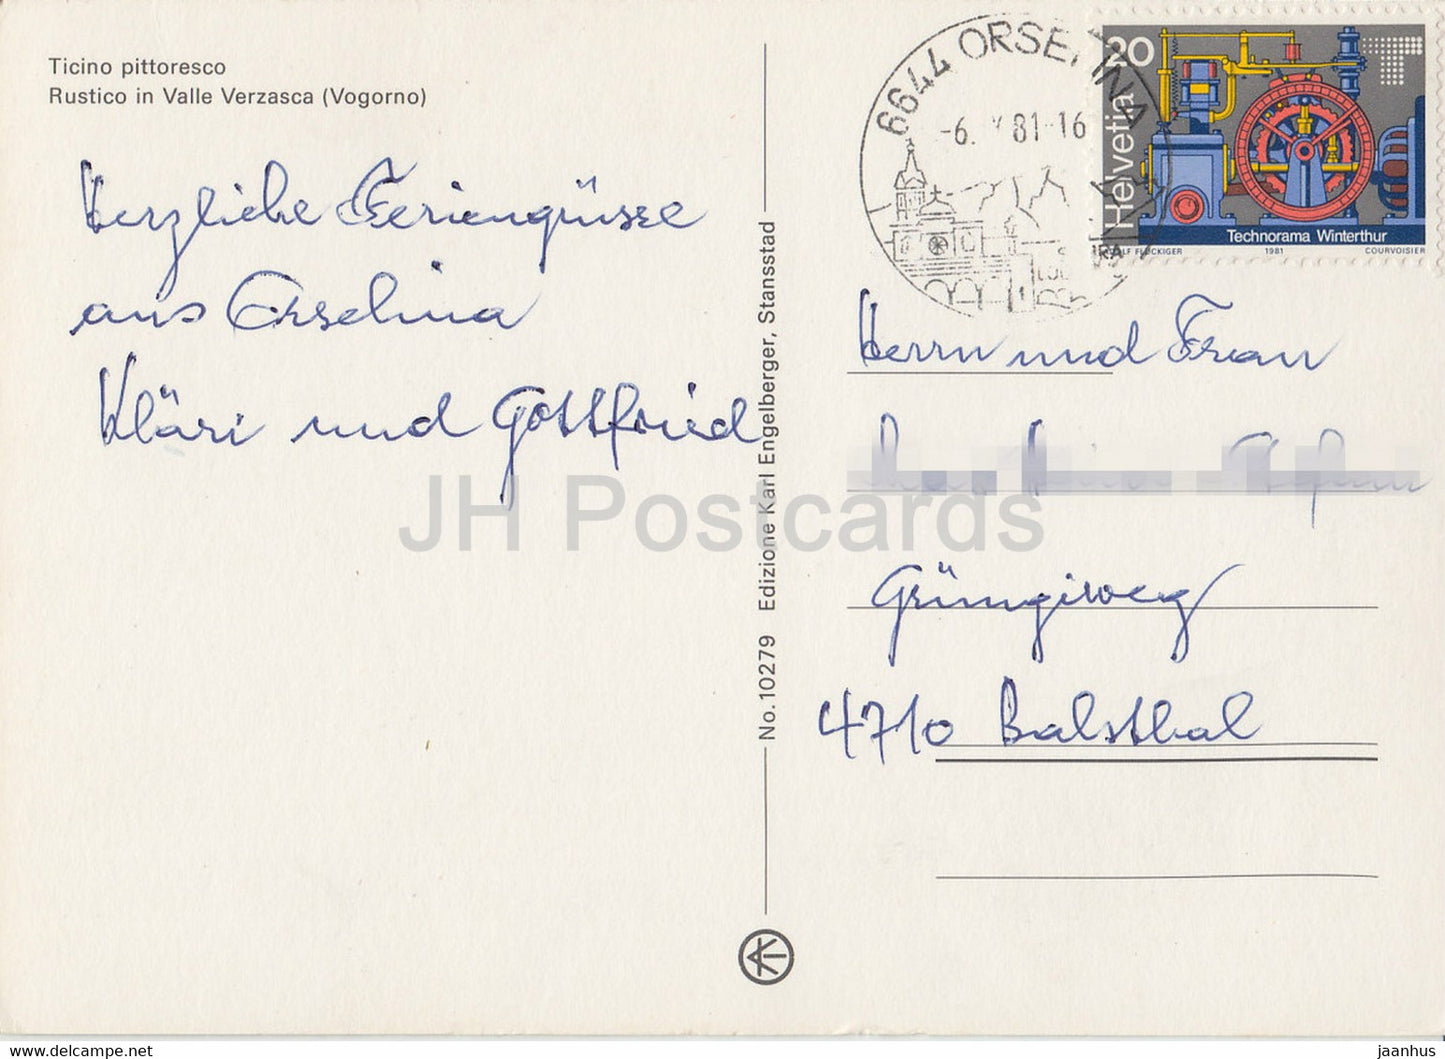 Ticino pittoresco
Rustico in Valle Verzasca (Vogorno)
Herzliche Feriengrüsse
aus Orselina
Kläri und Gottfried
No. 10279 Edizione Karl Engelberger, Stansstad
6644 ORSELINA
-6. 81-16
20
Helvetia
Technorama Winterthur
1981 COURVOISIER
Herrn und Frau
Grüngiweg
4710 Balsthal
JH Postcards
www.delcampe.net
jaanhus